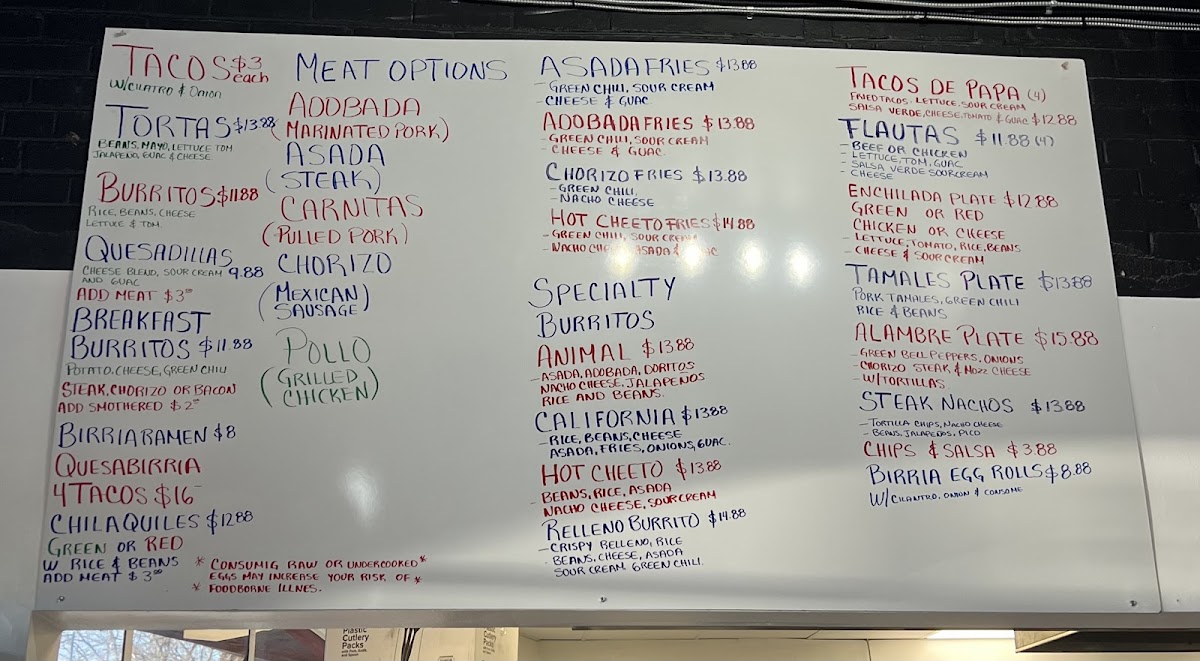 TACOS $3 each
W/CILATRO & ONION
TORTAS $13.88
BEANS, MAYO, LETTUCE TOM
JALAPENO, GUAC & CHEESE
BURRITOS $11.88
RICE, BEANS, CHEESE
LETTUCE & TOM.
QUESADILLAS
CHEESE BLEND, SOUR CREAM 9.88
AND GUAC
ADD MEAT $3.00
BREAKFAST
BURRITOS $11.88
POTATO, CHEESE, GREEN CHILI
STEAK, CHORIZO OR BACON
ADD SMOTHERED $2.00
BIRRIA RAMEN $8
QUESABIRRIA
4 TACOS $16
CHILAQUILES $12.88
GREEN OR RED
W RICE & BEANS
ADD MEAT $3.00
* CONSUMIG RAW OR UNDERCOOKED *
EGGS MAY INCREASE YOUR RISK OF *
* FOODBORNE ILLNES.
MEAT OPTIONS
ADOBADA
(MARINATED PORK)
ASADA
(STEAK)
CARNITAS
(PULLED PORK)
CHORIZO
(MEXICAN
SAUSAGE)
POLLO
(GRILLED
CHICKEN)
ASADA FRIES $13.88
- GREEN CHILI, SOUR CREAM
- CHEESE & GUAC
ADOBADA FRIES $13.88
- GREEN CHILI, SOUR CREAM
- CHEESE & GUAC.
CHORIZO FRIES $13.88
- GREEN CHILI,
- NACHO CHEESE
HOT CHEETO FRIES $14.88
- GREEN CHILI, SOUR CREAM
- NACHO ASADA &
SPECIALTY
BURRITOS
ANIMAL $13.88
- ASADA, ADOBADA, DORITOS
NACHO CHEESE, JALAPENOS
RICE AND BEANS.
CALIFORNIA $13.88
- RICE, BEANS, CHEESE
ASADA, FRIES, ONIONS, GUAC.
HOT CHEETO $13.88
- BEANS, RICE, ASADA
NACHO CHEESE, SOUR CREAM
RELLENO BURRITO $14.88
- CRISPY RELLENO, RICE
- BEANS, CHEESE, ASADA
SOUR CREAM GREEN CHILI.
TACOS DE PAPA (4)
FRIED TACOS, LETTUCE, SOUR CREAM
SALSA VERDE, CHEESE, TOMATO & GUAC $12.88
FLAUTAS $11.88 (4)
- BEEF OR CHICKEN
- LETTUCE, TOM, GUAC
- SALSA VERDE SOURCREAM
- CHEESE
ENCHILADA PLATE $12.88
GREEN OR RED
CHICKEN OR CHEESE
- LETTUCE, TOMATO, RICE, BEANS
- CHEESE & SOUR CREAM
TAMALES PLATE $13.88
PORK TAMALES, GREEN CHILI
RICE & BEANS
ALAMBRE PLATE $15.88
- GREEN BELL PEPPERS, ONIONS
- CHORIZO STEAK & MOZZ CHEESE
- W/TORTILLAS
STEAK NACHOS $13.88
- TORTILLA CHIPS, NACHO CHEESE
- BEANS, JALAPEÑOS, PICO
CHIPS & SALSA $3.88
BIRRIA EGG ROLLS $8.88
W/ CILANTRO, ONION & CONSOME
Plastic
Cutlery
Packs